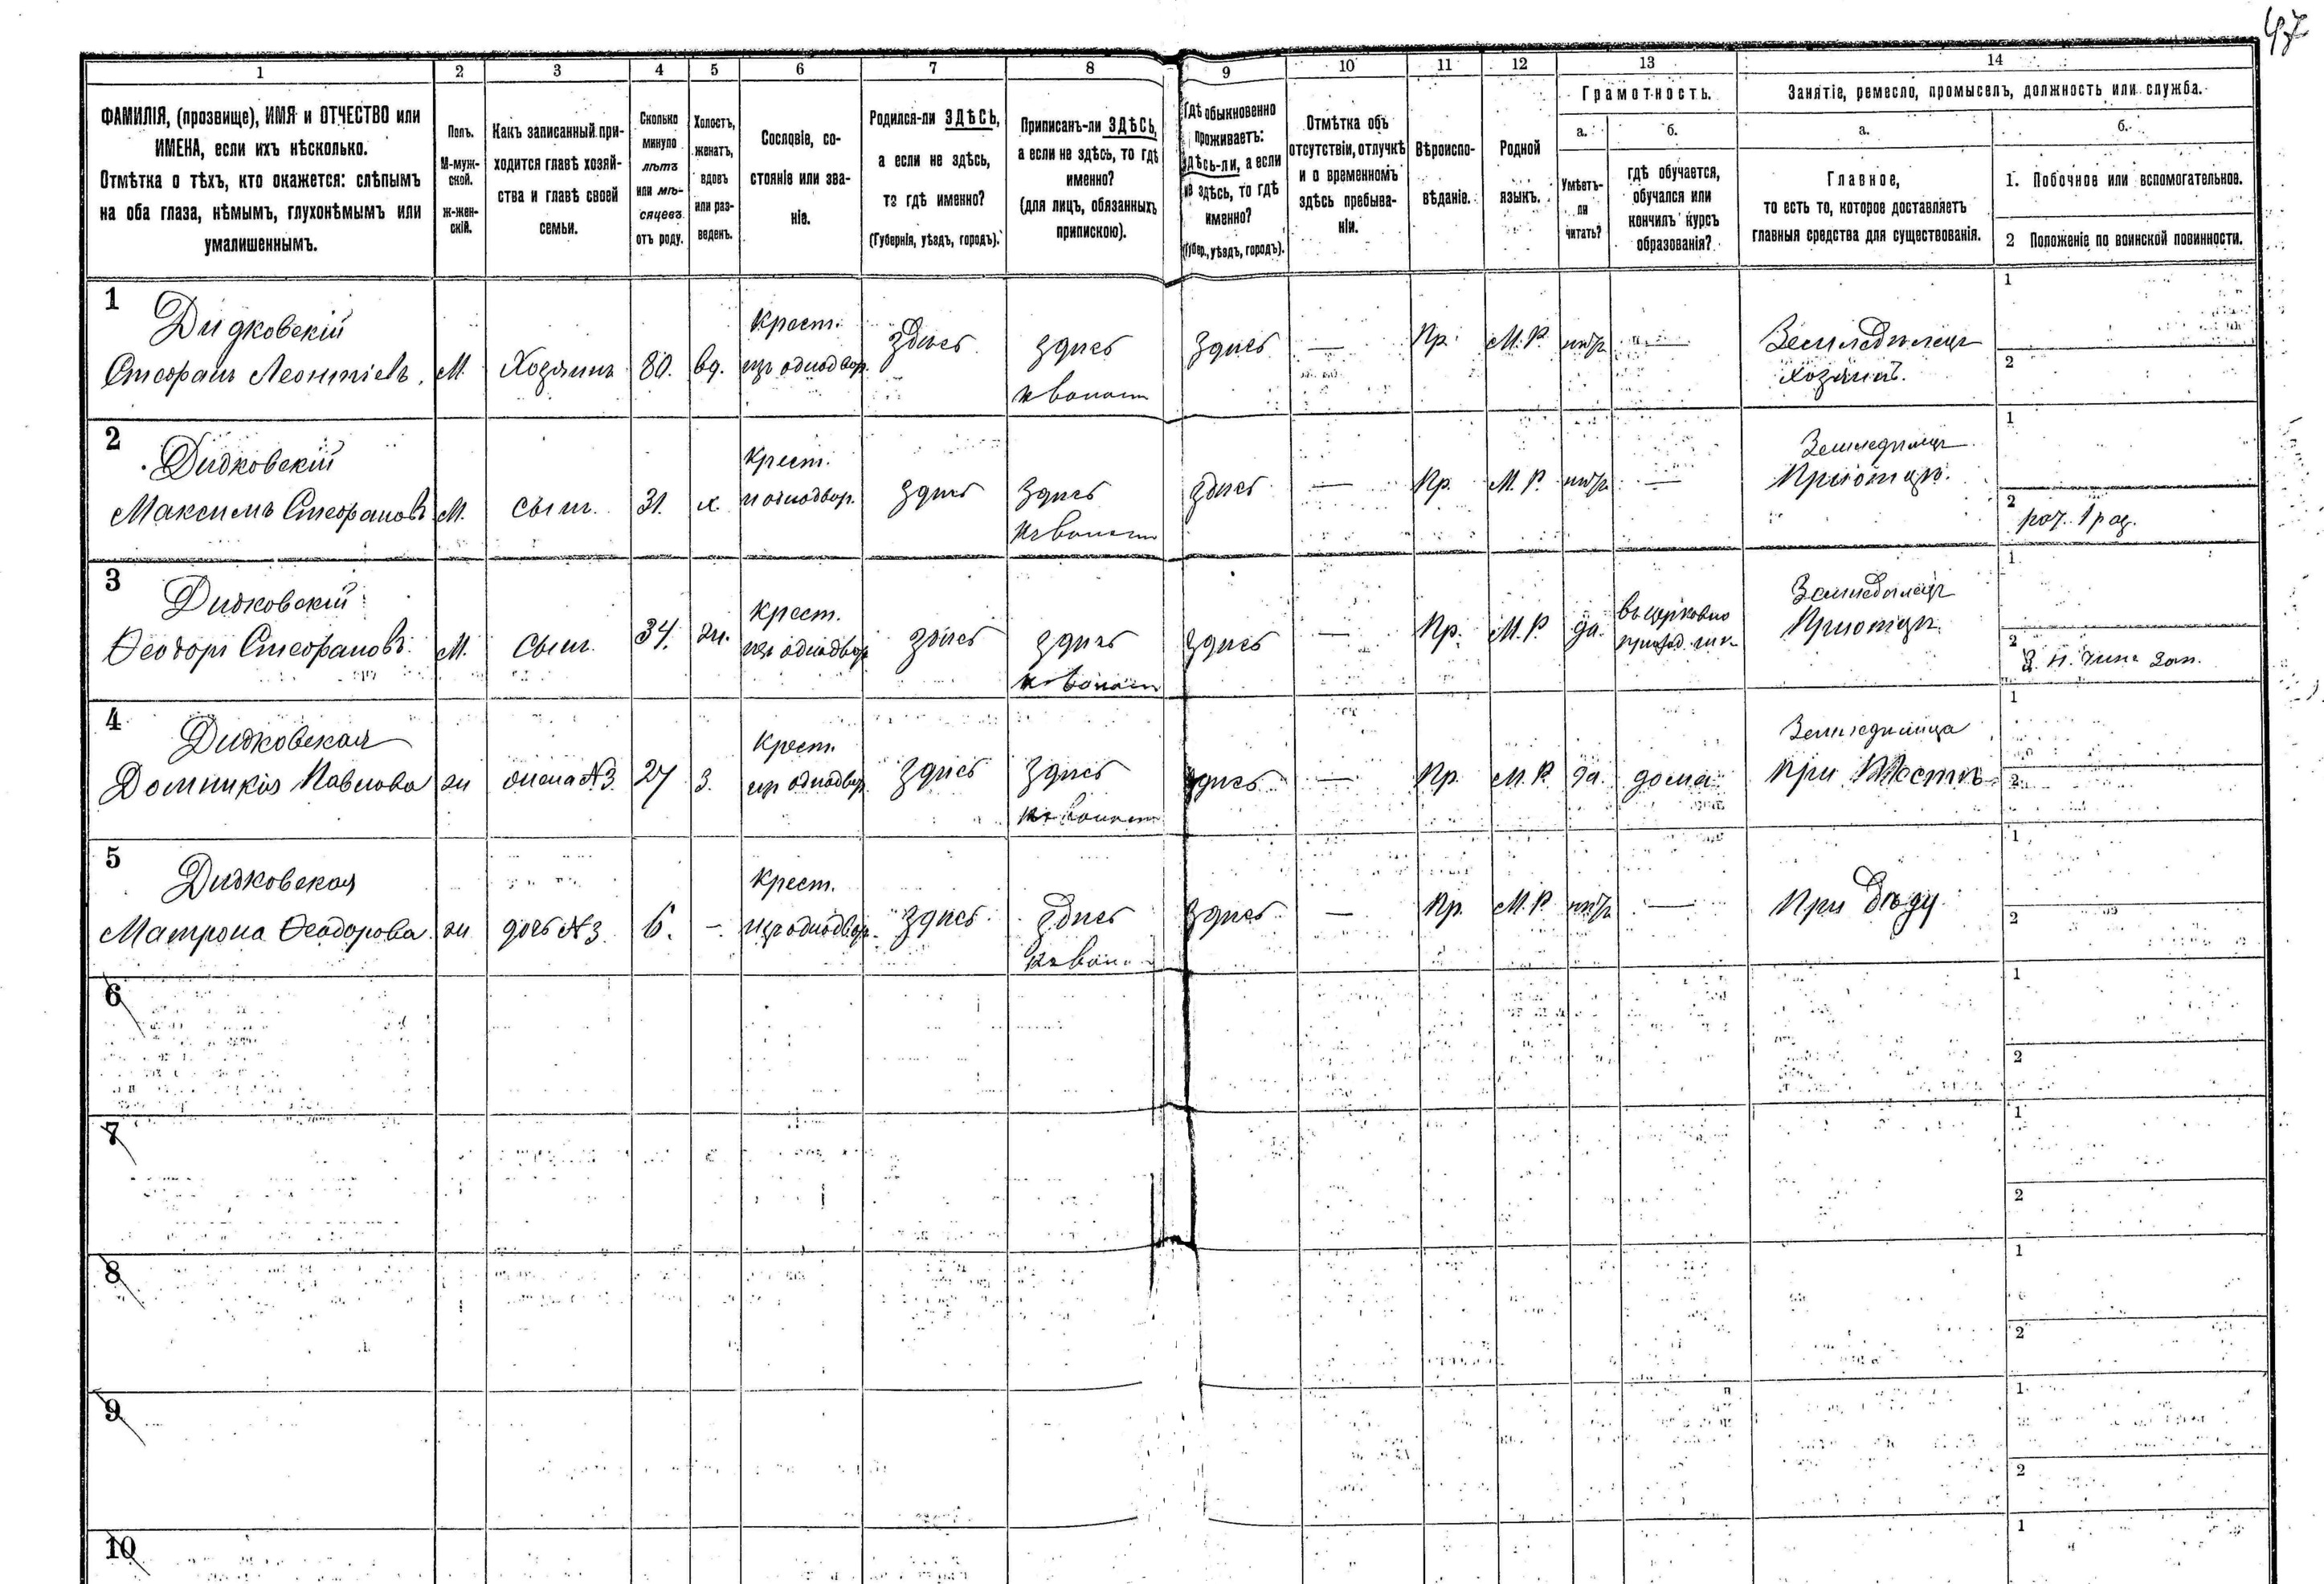 47
1 2 3 4 5 6 7 8 9 10 11 12 13 14
ФАМИЛІЯ, (прозвище), ИМЯ и ОТЧЕСТВО или
ИМЕНА, если ихъ нѣсколько.
Отмѣтка о тѣхъ, кто окажется: слѣпымъ
на оба глаза, нѣмымъ, глухонѣмымъ или
умалишеннымъ.
Полъ.
М-муж-
ской.
Ж-жен-
скій.
Какъ записанный при-
ходится главѣ хозяй-
ства и главѣ своей
семьи.
Сколько
минуло
лѣтъ
или мѣ-
сяцевъ
отъ роду.
Холостъ,
женатъ,
вдовъ
или раз-
веденъ.
Сословіе, со-
стояніе или зва-
ніе.
Родился-ли ЗДѢСЬ,
а если не здѣсь,
то гдѣ именно?
(Губернія, уѣздъ, городъ).
Приписанъ-ли ЗДѢСЬ,
а если не здѣсь, то гдѣ
именно?
(для лицъ, обязанныхъ
припискою).
Гдѣ обыкновенно
проживаетъ:
здѣсь-ли, а если
не здѣсь, то гдѣ
именно?
(Губер., уѣздъ, городъ).
Отмѣтка объ
отсутствіи, отлучкѣ
и о временномъ
здѣсь пребыва-
ніи.
Вѣроиспо-
вѣданіе.
Родной
языкъ.
Грамотность.
а.
Умѣетъ-
ли
читать?
б.
гдѣ обучается,
обучался или
кончилъ курсъ
образованія?
Занятіе, ремесло, промыселъ, должность или служба.
а.
Главное,
то есть то, которое доставляетъ
главныя средства для существованія.
б.
1. Побочное или вспомогательное.
2 Положеніе по воинской повинности.
1
Дидковскій
Стефанъ Леонтіевъ. М. Хозяинъ 80. вд. Крест. изъ однодвор. здѣсь здѣсь къ волост здѣсь — Пр. М. Р. нѣтъ — Земледѣлецъ хозяинъ.
1
2
2
Дидковскій
Максимъ Стефановъ М. сынъ. 31. х. Крест. изъ однодвор. здѣсь здѣсь къ волост здѣсь — Пр. М. Р. нѣтъ — Земледѣлецъ
1
2
3
Дидковскій
Ѳеодоръ Стефановъ. М. сынъ. 34. Крест. изъ однодвор здѣсь здѣсь къ волост здѣсь — Пр. М. Р. да. въ церковно приход. шк.
Земледѣлецъ
1
2
4
Дидковская
Домникія Павлова ж жена №3 27 З. Крест. изъ однодвор здѣсь здѣсь къ волост здѣсь — Пр. М. Р. да. дома
при
1
2
5
Дидковская
Матрона Ѳеодорова. ж дочь №3 6. —. Крест. изъ однодвор. здѣсь здѣсь къ воло здѣсь — Пр. М. Р. нѣтъ — При Дѣду
1
2
6
1
2
7
1
2
8
1
2
9
1
2
10
1